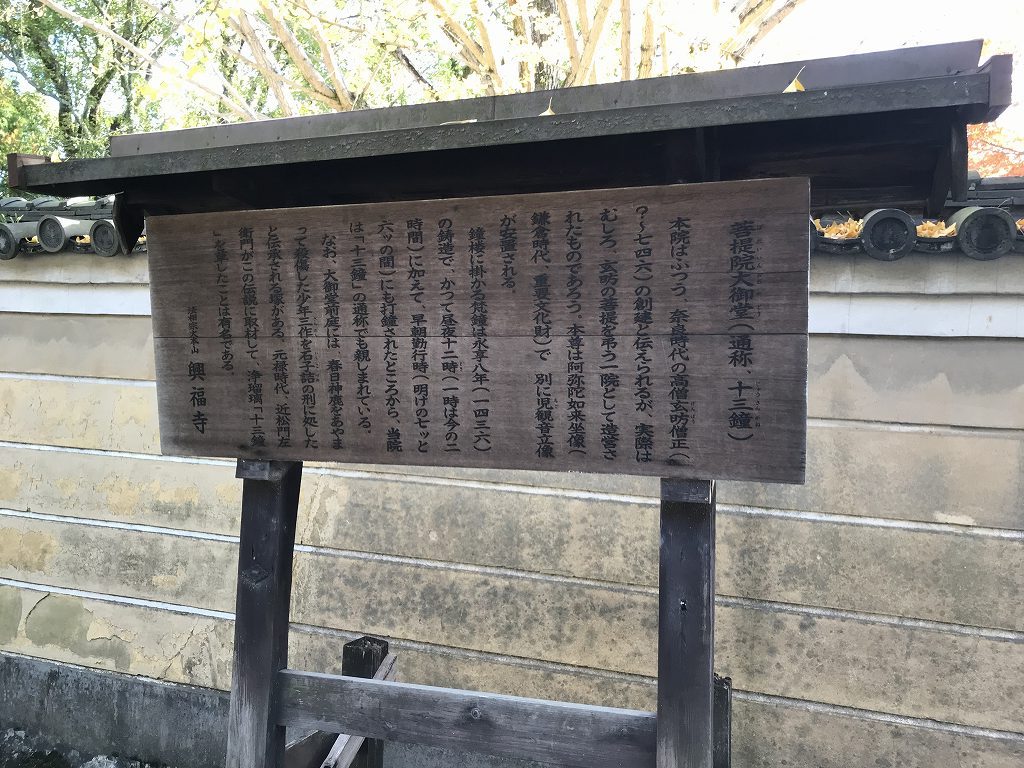 菩提院大御堂（通称、十三鐘）
本院はふつう、奈良時代の高僧玄昉僧正（
？〜七四六）の創建と伝えられるが、実際は
むしろ、玄昉の菩提を弔う一院として造営さ
れたものであろう。本尊は阿弥陀如来坐像（
鎌倉時代、重要文化財）で、別に児観音立像
が安置される。
鐘楼に掛かる梵鐘は永享八年（一四三六）
の鋳造で、かつて昼夜十二時（一時は今の二
時間）に加えて、早朝勤行時（明けの七ッと
六ッの間）にも打鐘されたところから、当院
は「十三鐘」の通称でも親しまれている。
なお、大御堂前庭には、春日神鹿をあやま
って殺傷した少年三作を石子詰の刑に処した
と伝承される塚がある。元禄時代、近松門左
衛門がこの伝説に取材して、浄瑠璃「十三鐘
」を草したことは有名である。
法相宗大本山 興福寺